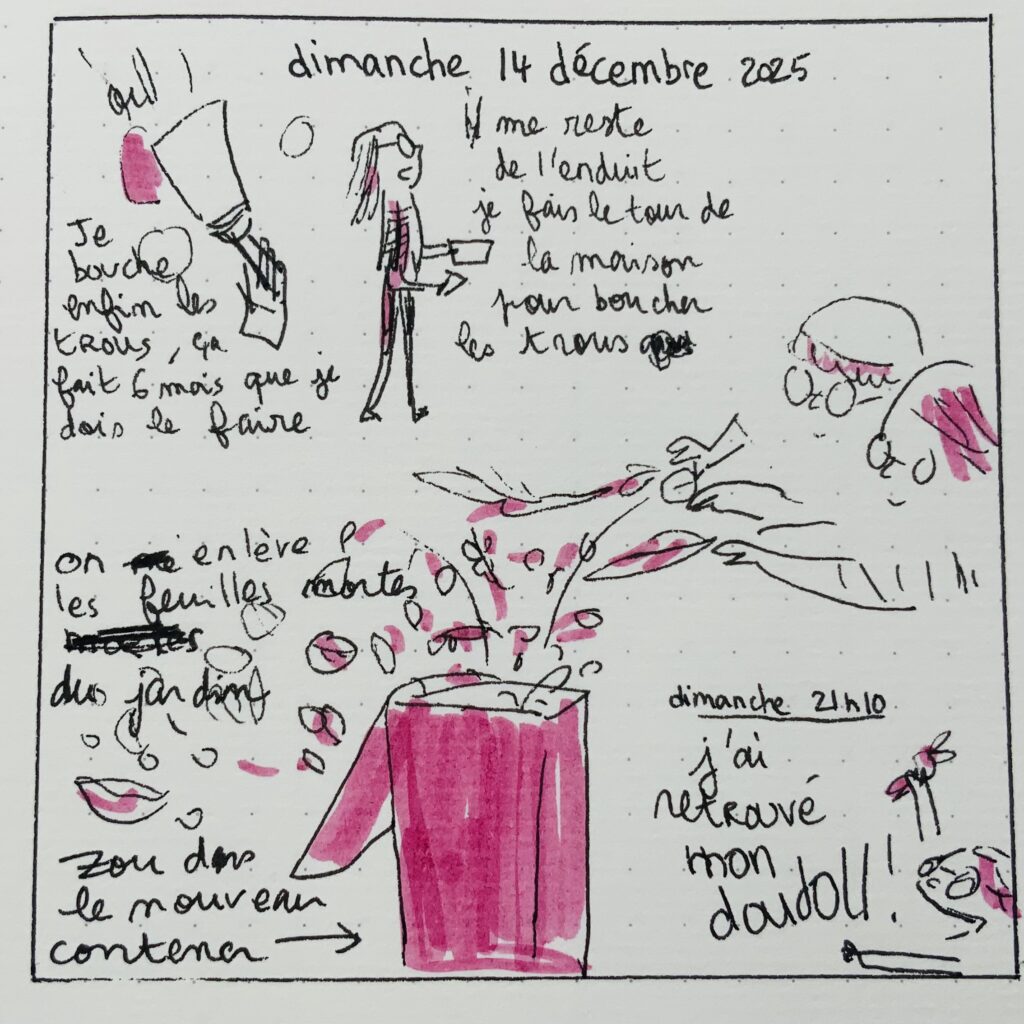 dimanche 14 décembre 2025
ouf !
Je
bouche
enfin les
trous, ça
fait 6 mois que je
dois le faire
il me reste
de l'enduit
je fais le tour de
la maison
pour boucher
les trous
on enlève
les feuilles mortes
du jardin
zou dans
le nouveau
container
dimanche 21h10
j'ai
retrouvé
mon
doudou !